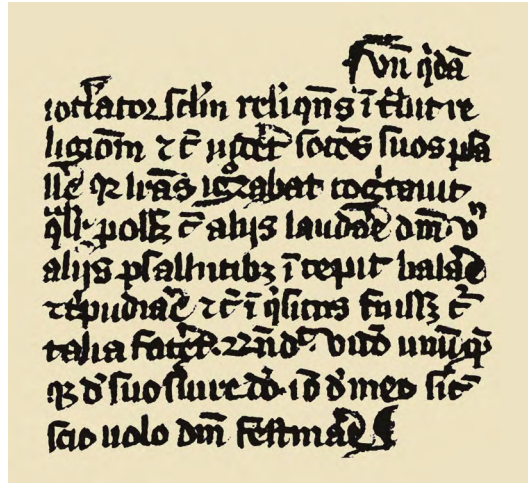 vn̄ q̇dā
ioc̄lator sc̄lm reliqn̄s ītͣuit re
ligiōm ⁊ c̄ uid̄et socios suos psa
ll̄e qͥ lr̄as igͦrabat cogͥtauit
qͣlr poss̄ c̄ aliis laudar̄e dm̄ vn̄
aliis psallētibꝫ īcepit balar̄e
⁊ tͥpudiar̄e ⁊ c̄ īqͥsitus fuissꝫ cͬ
talia facet̄. Rn̄d̄ video unūqͣ
qꝫ d̄ suo s̄uire deo. iō d̄ meo sic̄
scio uolo dm̄ festinar̄e